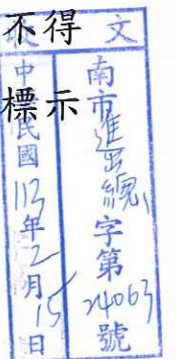 不得
標示
文
南市進出總字第24063號
中民國113年2月15日